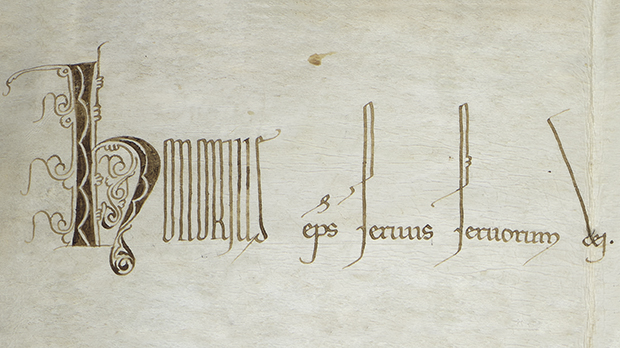 honorius eps seruus seruorum dei.